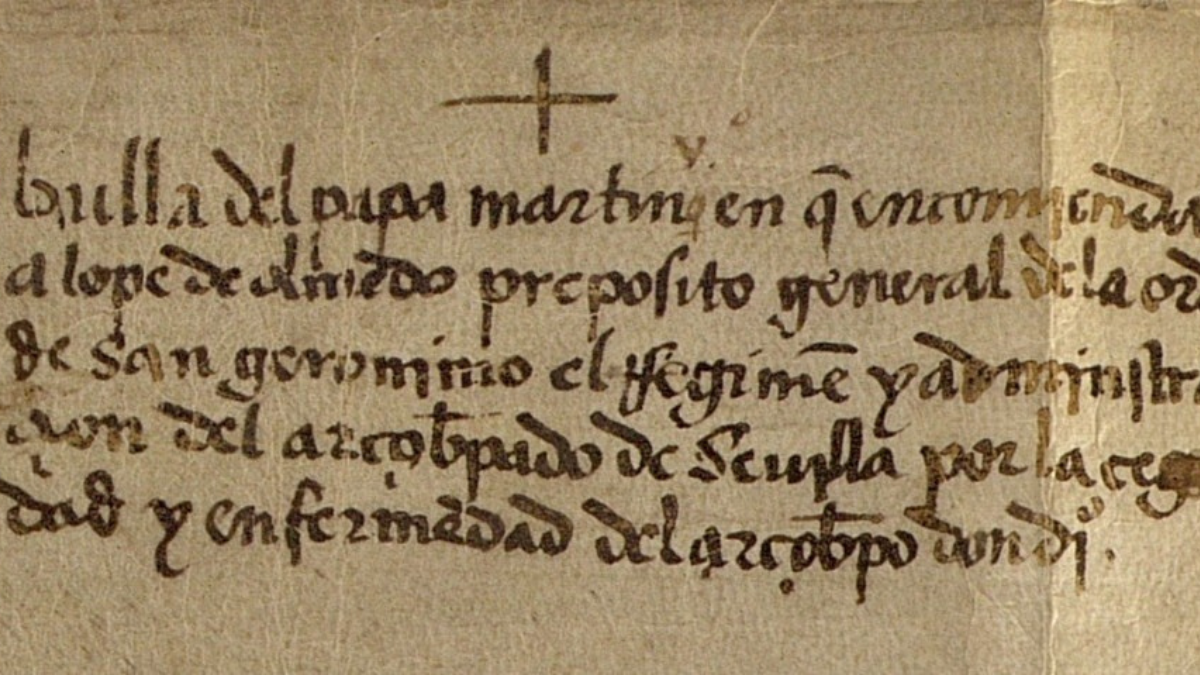 +
v.º
bulla del papa martin en q̄ encomienda
a lope de olmedo preposito general de la or
de san geronimo el rregimē y administra
çion del arçobpado de Seuilla por la çeg
dad y enfermedad del arçobpo don diº.